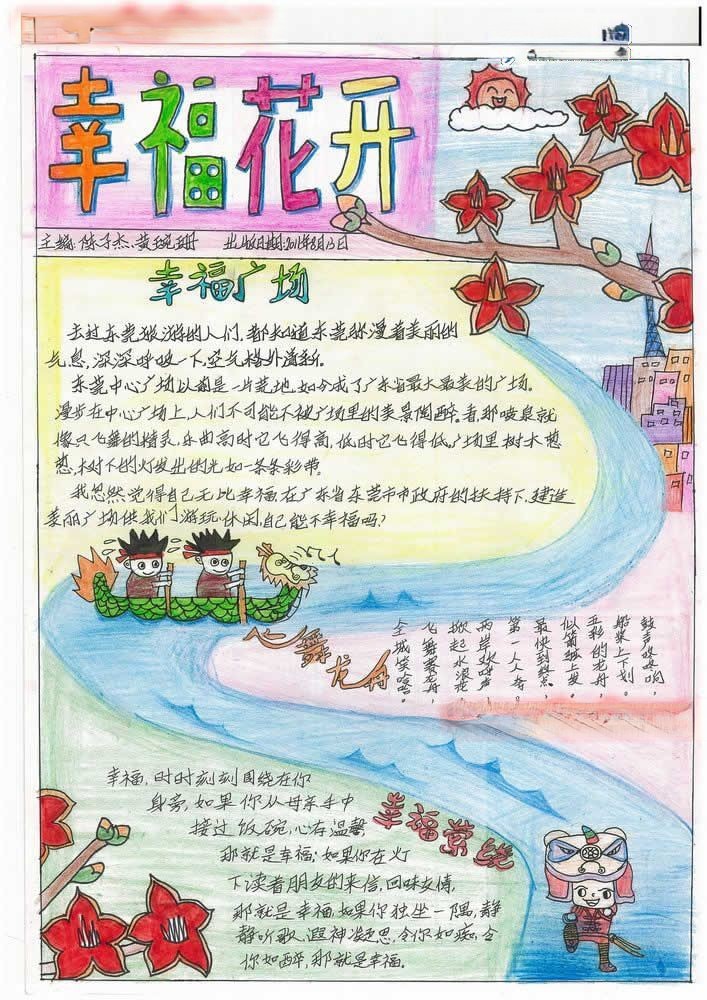 幸福花开
主编:陈子杰、黄琬珊 出版日期:2011年8月13日
幸福广场
去过东莞旅游的人们,都知道东莞弥漫着美丽的
气息,深深呼吸一下,空气格外清新。
东莞中心广场以前是一片荒地,如今成了广东省最大最美的广场。
漫步在中心广场上,人们不可能不被广场里的美景陶醉。看,那喷泉就
像只飞舞的精灵,乐曲高时它飞得高,低时它飞得低。广场里树木葱
葱,树下的灯发出的光如一条条彩带。
我忽然觉得自己无比幸福,在广东省东莞市市政府的扶持下,建造
美丽广场供我们游玩休闲,自己能不幸福吗?
心舞龙舟
鼓声咚咚响,
船桨上下划。
五彩的龙舟,
似箭弦上发。
最快到终点,
第一人人夸。
两岸欢呼声,
掀起水浪花
飞舞赛龙舟,
全城笑哈哈。
幸福萦绕
幸福,时时刻刻围绕在你
身旁,如果你从母亲手中
接过饭碗,心存温馨
那就是幸福;如果你在灯
下读着朋友的来信,回味友情,
那就是幸福,如果你独坐一隅,静
静听歌,凝神思,令你如痴,令
你如醉,那就是幸福。